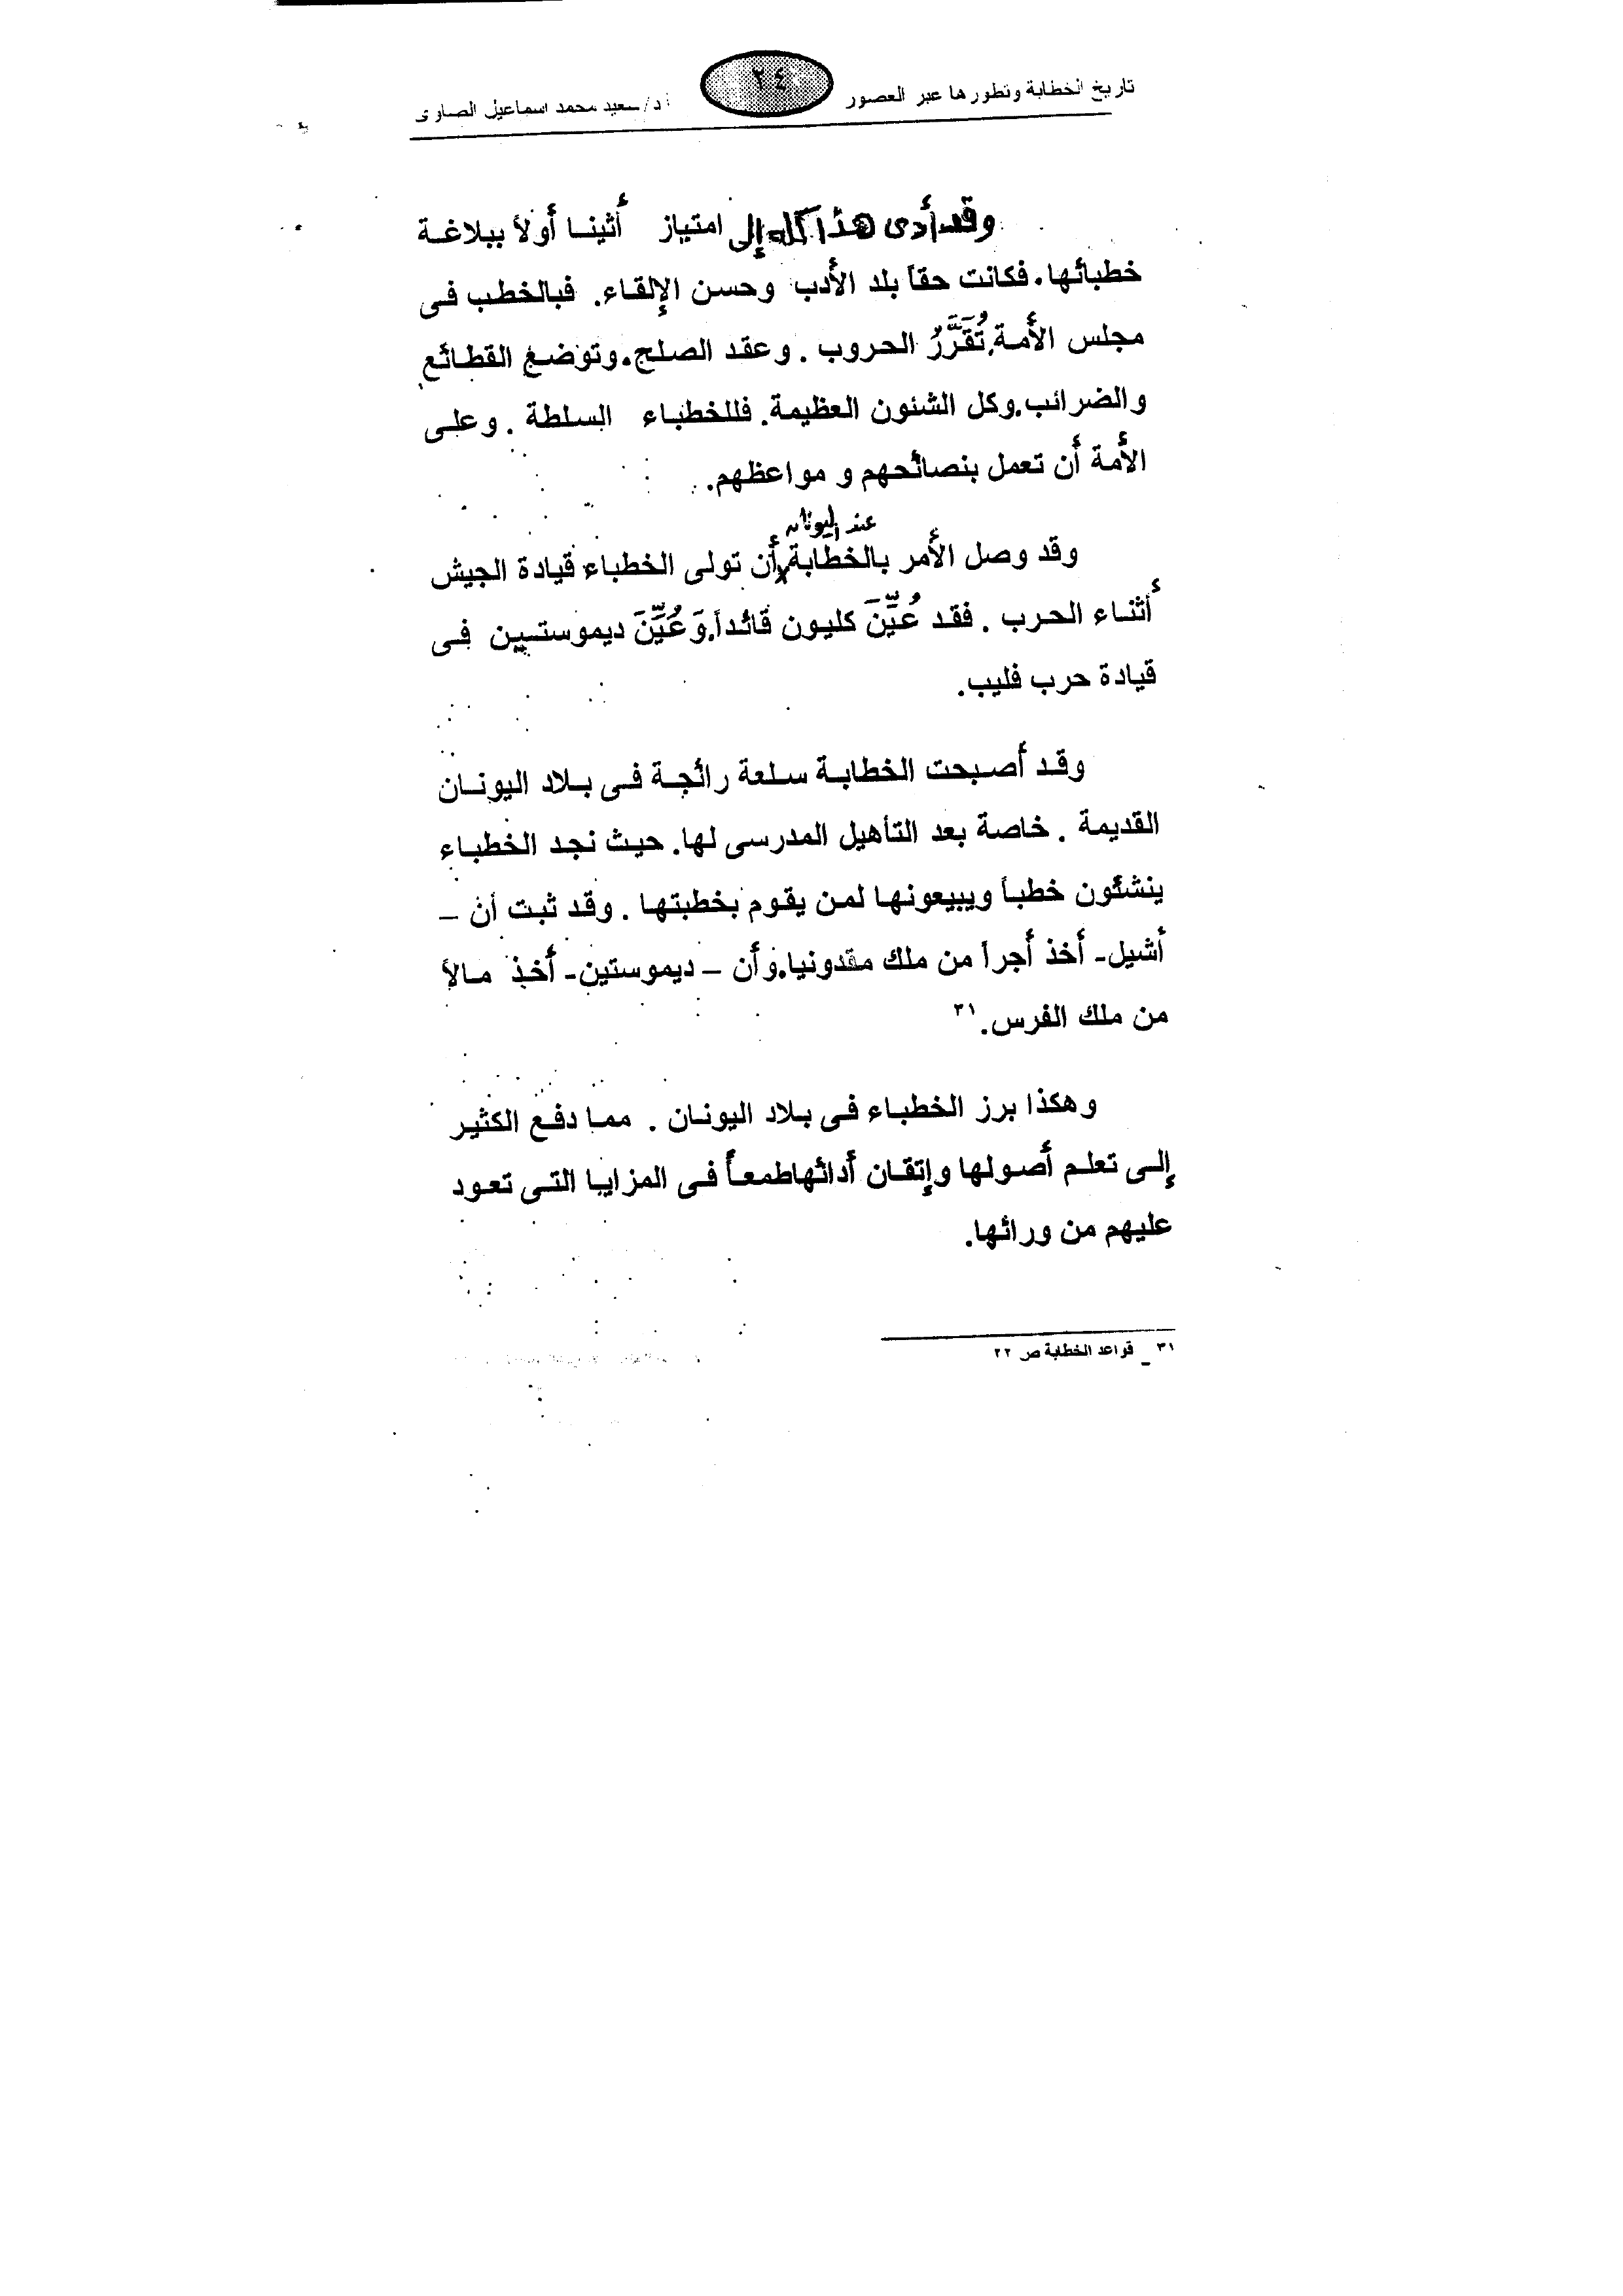 تاريخ الخطابة وتطورها عبر العصور ٢٤ أد/سعيد محمد اسماعيل الصاوى
وقد أدى هذا كله إلى امتياز أثينا أولاً ببلاغة
خطبائها. فكانت حقاً بلد الأدب وحسن الإلقاء. فبالخطب فى
مجلس الأمة. تُقَرَّرُ الحروب . وعقد الصلح. وتوضع القطائع
والضرائب. وكل الشئون العظيمة. فللخطباء السلطة . وعلى
الأمة أن تعمل بنصائحهم و مواعظهم.
عند اليونان
وقد وصل الأمر بالخطابة أن تولى الخطباء قيادة الجيش
أثناء الحرب . فقد عُيِّنَ كليون قائداً. وَعُيِّنَ ديموستسين فى
قيادة حرب فليب.
وقد أصبحت الخطابة سلعة رائجة فى بلاد اليونان
القديمة . خاصة بعد التأهيل المدرسى لها. حيث نجد الخطباء
ينشئون خطباً ويبيعونها لمن يقوم بخطبتها . وقد ثبت أن –
أشيل- أخذ أجراً من ملك مقدونيا. وأن – ديموستين- أخذ مالاً
من ملك الفرس.٣١
وهكذا برز الخطباء فى بلاد اليونان . مما دفع الكثير
إلى تعلم أصولها وإتقان أدائهاطمعاً فى المزايا التى تعود
عليهم من ورائها.
٣١ _ قواعد الخطابة ص ٢٢